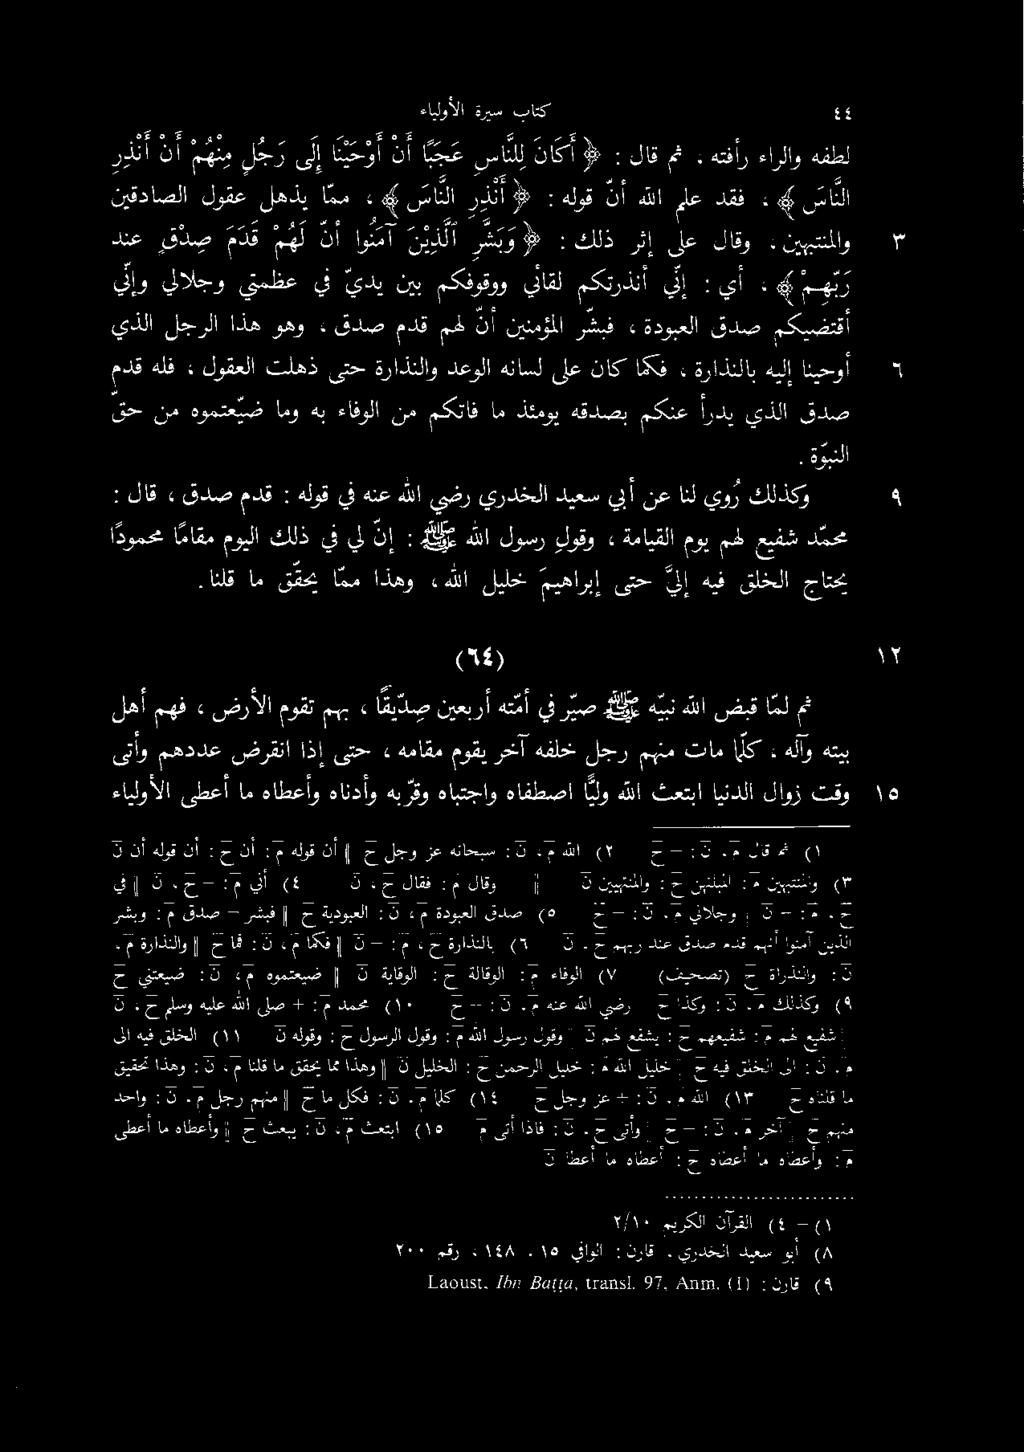 ٤٤ كتاب سيرة الأولياء
لطفه واراء رأفته . ثم قال : ﴿ أَكَانَ لِلنَّاسِ عَجَبًا أَنْ أَوْحَيْنَا إِلَى رَجُلٍ مِنْهُمْ أَنْ أَنْذِرِ
النَّاسَ ﴾ ، فقد علم الله أنّ قوله : ﴿ أَنْذِرِ النَّاسَ ﴾ ، ممّا يذهل عقول الصادقين
٣ والمنتبهين . وقال على إثر ذلك : ﴿ وَبَشِّرِ الَّذِيْنَ آمَنُوا أَنَّ لَهُمْ قَدَمَ صِدْقٍ عند
رَبِّهِمْ ﴾ ، أي : إنّي أنذرتكم لقائي ووقوفكم بين يديّ في عظمتي وجلالي وإنّي
أقتضيكم صدق العبودة ، فبشّر المؤمنين أنّ لهم قدم صدق ، وهو هذا الرجل الذي
٦ أوحينا إليه بالنذارة ، فكما كان على لسانه الوعد والنذارة حتى ذهلت العقول ، فله قدم
صدق الذي يدرأ عنكم بصدقه يومئذ ما فاتكم من الوفاء به وما ضيّعتموه من حقّ
النبوّة .
٩ وكذلك رُوي لنا عن أبي سعيد الخدري رضي الله عنه في قوله : قدم صدق ، قال :
محمّد شفيع لهم يوم القيامة ، وقول رسول الله ﷺ : إنّ لي في ذلك اليوم مقامًا محمودًا
يحتاج الخلق فيه إليّ حتى إبراهيمَ خليل الله ، وهذا ممّا يحقّق ما قلنا .
١٢ (٦٤)
ثم لمّا قبض الله نبيّه ﷺ صيّر في أمّته أربعين صِدّيقًا ، بهم تقوم الأرض ، فهم أهل
بيته وآله . كلّما مات منهم رجل خلفه آخر يقوم مقامه ، حتى إذا انقرض عددهم وأتى
١٥ وقت زوال الدنيا ابتعث الله وليًّا اصطفاه واجتباه وقرّبه وأدناه وأعطاه ما أعطى الأولياء
١) ثم قال م . ن : – ح ٢) الله م ، ن : سبحانه عز وجل ح ‖ أن قوله م : أن ح : أن قوله أن ن
٣) والمنتبهين م : المبلهين ح : والمنتهيين ن ‖ وقال م : فقال ح ، ن ٤) أني م : – ح ، ن ‖ في
ح . م : – ن ‖ وجلالي م . ن : – ح ٥) صدق العبودة م ، ن : العبودية ح ‖ فبشر – صدق م : وبشر
الذين آمنوا أنهم قدم صدق عند ربهم ح . ن ٦) بالنذارة ح ، م : – ن ‖ فكما م ، ن : فما ح ‖ والنذارة م .
ن : والنذراة ح (تصحيف) ٧) الوفاء م : الوقالة ح : الوقاية ن ‖ ضيعتموه م ، ن : ضيعتني ح
٩) وكذلك م . ن : وكذا ح ‖ رضي الله عنه م . ن : – ح ١٠) محمد م : + صلى الله عليه وسلم ح ، ن
‖ شفيع لهم م : شفيعهم ح : يشفع لهم ن ‖ وقول رسول الله م : وقول الرسول ح : وقوله ن ١١) الخلق فيه الى
م . ن : الى الخلق فيه ح ‖ خليل الله م : خليل الرحمن ح : الخليل ن ‖ وهذا مما يحقق ما قلنا م ، ن : وهذا تحقيق
ما قلناه ح ١٣) الله م . ن : + عز وجل ح ١٤) كلما م . ن : فكل ما ح ‖ منهم رجل م . ن : واحد
منهم ح ‖ آخر م . ن : – ح ‖ وأتى ح . ن : فاذا اتى م ١٥) ابتعث م ، ن : يبعث ح ‖ وأعطاه ما أعطى
م : وأعطاه ما أعطاه ح : أعطاه ما أعطا ن
١) – ٤) القرآن الكريم ٢/١٠
٨) أبو سعيد الخدري . قارن : الوافي ١٥ . ١٤٨ ، رقم ٢٠٠
٩) قارن : Laoust, Ibn Baṭṭa, transl. 97, Anm. (1)